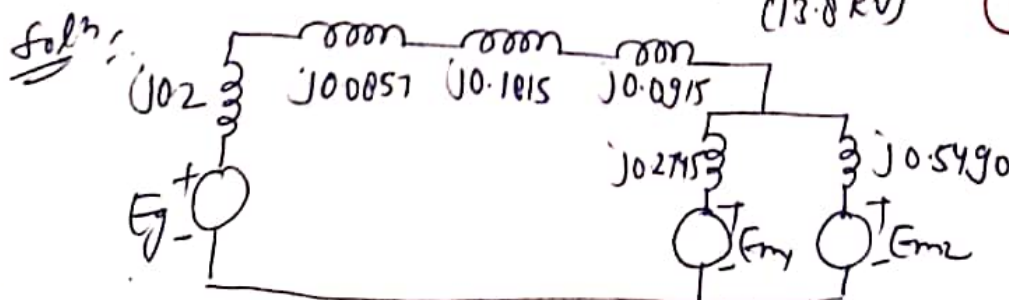 (13.8 KV)
Solⁿ:
j0.2 j0.0857 j0.1815 j0.0915
j0.2745 j0.5490
+ Eg - + Em1 - + Em2 -